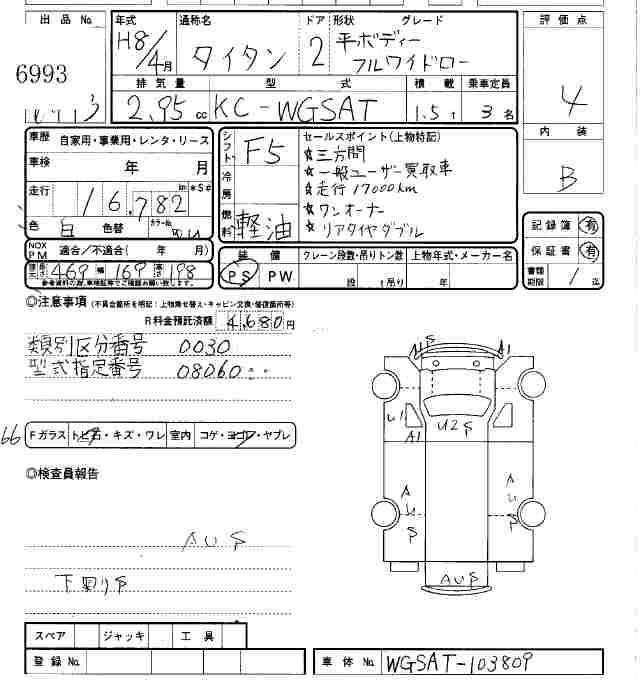 出品No 年式 通称名 ドア 形状 グレード 評価点
6993 H8/4月 タイタン 2 平ボディー
フルワイドロー
排気量 型式 積載 乗車定員
2.95cc KC-WGSAT 1.5t 3名 4
車歴 自家用・事業用・レンタ・リース
車検 年 月
走行 16,782 km *S#
色 白 色替 カラーNo.
NOX PM 適合/不適合( 年 月)
長さ 469 幅 169 高さ 198
参考資料の為、車検証等でご確認お願い致します。
シフト F5
冷房
燃料 軽油
セールスポイント(上物特記)
☆三方開
☆一般ユーザー買取車
☆走行17000km
☆ワンオーナー
☆リアタイヤダブル
内装
B
記録簿 有
保証書 有
書類期限 / 迄
装備 クレーン段数・吊りトン数 上物年式・メーカー名
PS PW 段 t吊り 年
◎注意事項 (不具合箇所を明記:上物乗せ替え・キャビン交換・修復箇所等)
R料金預託済額 4,680円
類別区分番号 0030
型式指定番号 08060
66 Fガラス トビ石・キズ・ワレ 室内 コゲ・ヨゴレ・ヤブレ
◎検査員報告
AUS
下廻りS
AUS
A1 A1
U1 A1 U2S
AUS AUS
AUS
スペア ジャッキ 工具
登録No. 車体No. WGSAT-103809